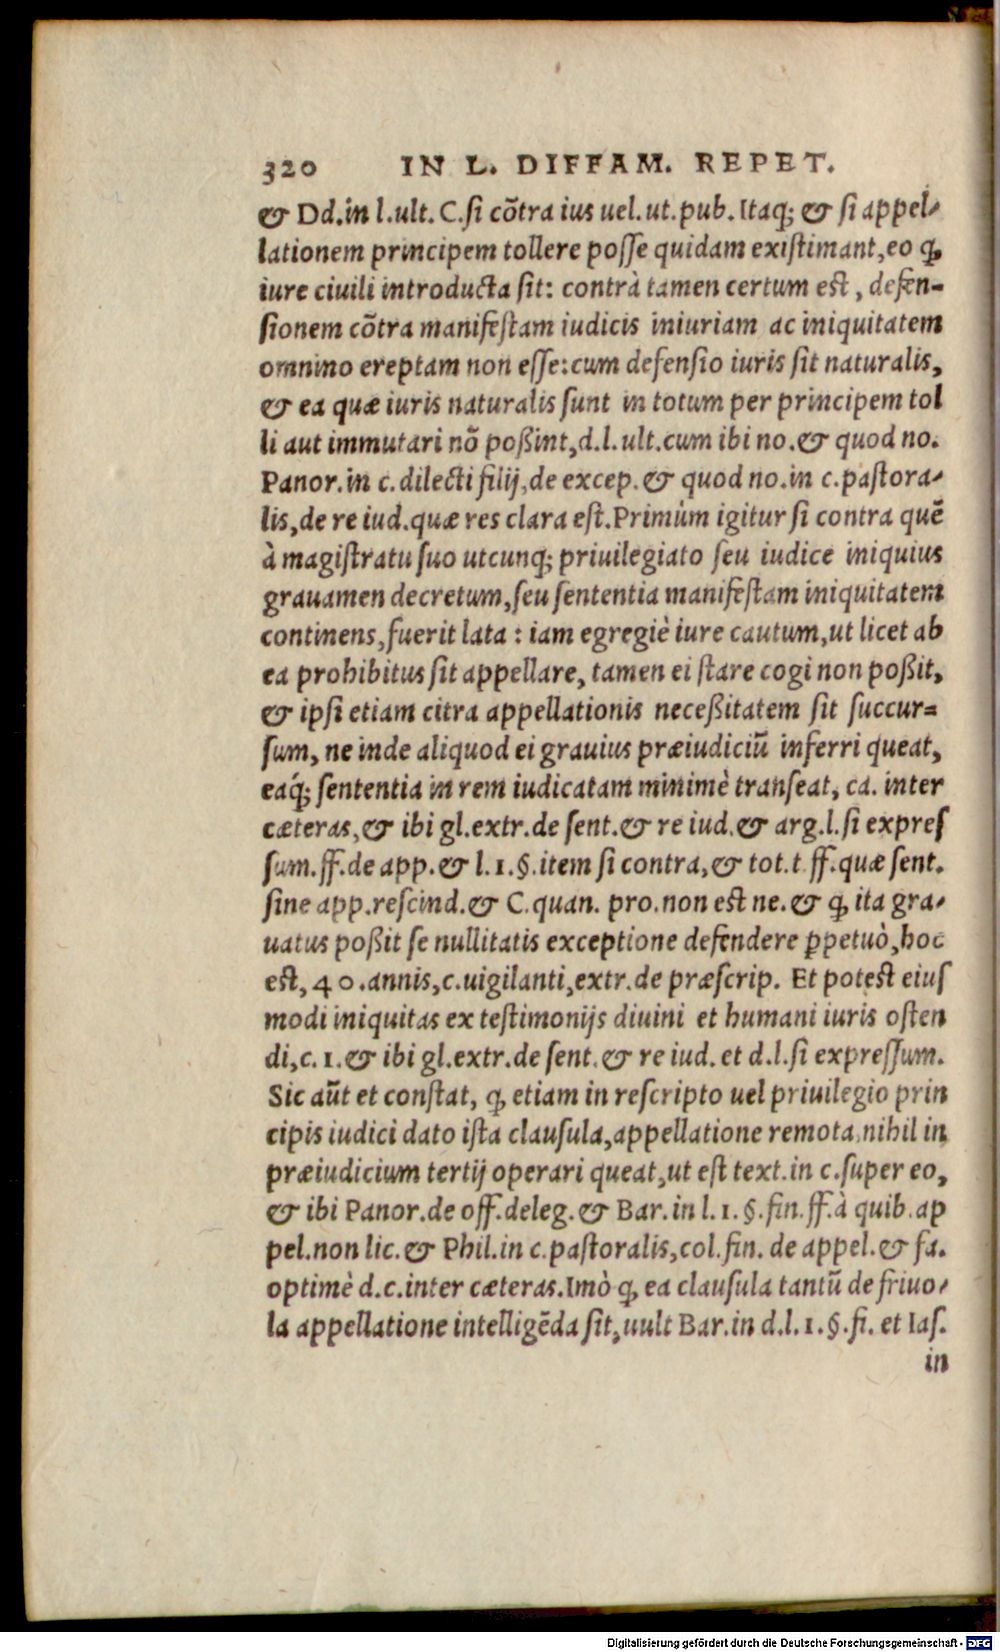 320 IN L. DIFFAM. REPET.
& Dd.in l.ult. C.ſi cõtra ius uel.ut.pub. Itaq; & ſi appel-
lationem principem tollere poſſe quidam exiſtimant,eo ꝙ
iure ciuili introducta ſit: contrà tamen certum eſt, defen-
ſionem cõtra manifeſtam iudicis iniuriam ac iniquitatem
omnino ereptam non eſſe:cum defenſio iuris ſit naturalis,
& ea quæ iuris naturalis ſunt in totum per principem tol
li aut immutari nõ poßint,d.l.ult.cum ibi no.& quod no.
Panor.in c.dilecti filij,de excep.& quod no.in c.paſtora-
lis,de re iud.quæ res clara eſt.Primùm igitur ſi contra quẽ
à magiſtratu ſuo utcunq; priuilegiato ſeu iudice iniquius
grauamen decretum,ſeu ſententia manifeſtam iniquitatem
continens,fuerit lata : iam egregiè iure cautum,ut licet ab
ea prohibitus ſit appellare, tamen ei ſtare cogi non poßit,
& ipſi etiam citra appellationis neceßitatem ſit ſuccur-
ſum, ne inde aliquod ei grauius præiudiciũ inferri queat,
eaq́; ſententia in rem iudicatam minimè tranſeat, ca. inter
cæteras,& ibi gl.extr.de ſent.& re iud.& arg.l.ſi expreſ
ſum.ff.de app.& l.1.§.item ſi contra,& tot.t.ff.quæ ſent.
ſine app.reſcind.& C.quan. pro.non eſt ne.& ꝙ ita gra-
uatus poßit ſe nullitatis exceptione defendere ꝑpetuò,hoc
eſt, 40.annis,c.uigilanti,extr.de præſcrip. Et poteſt eiuſ
modi iniquitas ex teſtimonijs diuini et humani iuris oſten
di,c.1.& ibi gl.extr.de ſent.& re iud. et d.l.ſi expreſſum.
Sic aũt et conſtat, ꝙ etiam in reſcripto uel priuilegio prin
cipis iudici dato iſta clauſula,appellatione remota,nihil in
præiudicium tertij operari queat,ut eſt text.in c.ſuper eo,
& ibi Panor.de off.deleg.& Bar.in l.1.§.fin.ff.à quib.ap
pel.non lic.& Phil.in c.paſtoralis,col.fin. de appel.& fa.
optimè d.c.inter cæteras.Imò ꝙ ea clauſula tantũ de friuo-
la appellatione intelligẽda ſit,uult Bar.in d.l.1.§.fi. et Iaſ.
in
Digitalisierung gefördert durch die Deutsche Forschungsgemeinschaft - DFG